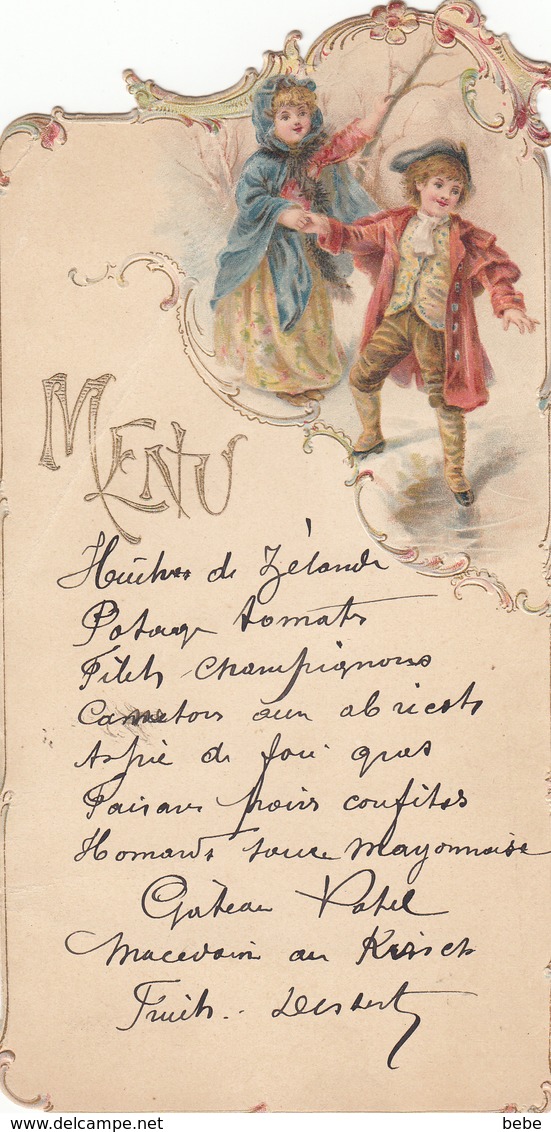 MENU
Huîtres de Zélande
Potage tomate
Filets champignons
Cannetons aux abricots
Aspic de foie gras
Faisans poires confites
Homards sauce Mayonnaise
Gâteau Vatel
Macedoine au Kirsch
Fruits.. Dessert
www.delcampe.net
bebe